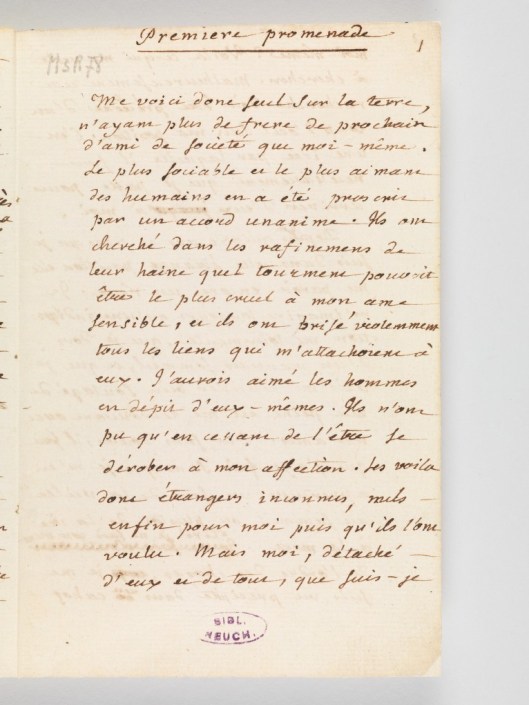 Premiere promenade
1
MsR78
Me voici donc seul sur la terre,
n'ayant plus de frere de prochain
d'ami de societé que moi-même.
Le plus sociable et le plus aimant
des humains en a été proscrit
par un accord unanime. Ils ont
cherché dans les rafinemens de
leur haine quel tourment pouvoit
être le plus cruel à mon ame
sensible, et ils ont brisé violemment
tous les liens qui m'attachoient à
eux. J'aurois aimé les hommes
en dépit d'eux-mêmes. Ils n'ont
pu qu'en cessant de l'être se
dérober à mon affection. Les voila
donc étrangers inconnus, nuls
enfin pour moi puis qu'ils l'ont
voulu. Mais moi, détaché
d'eux et de tout, que suis-je
BIBL.
NEUCH.